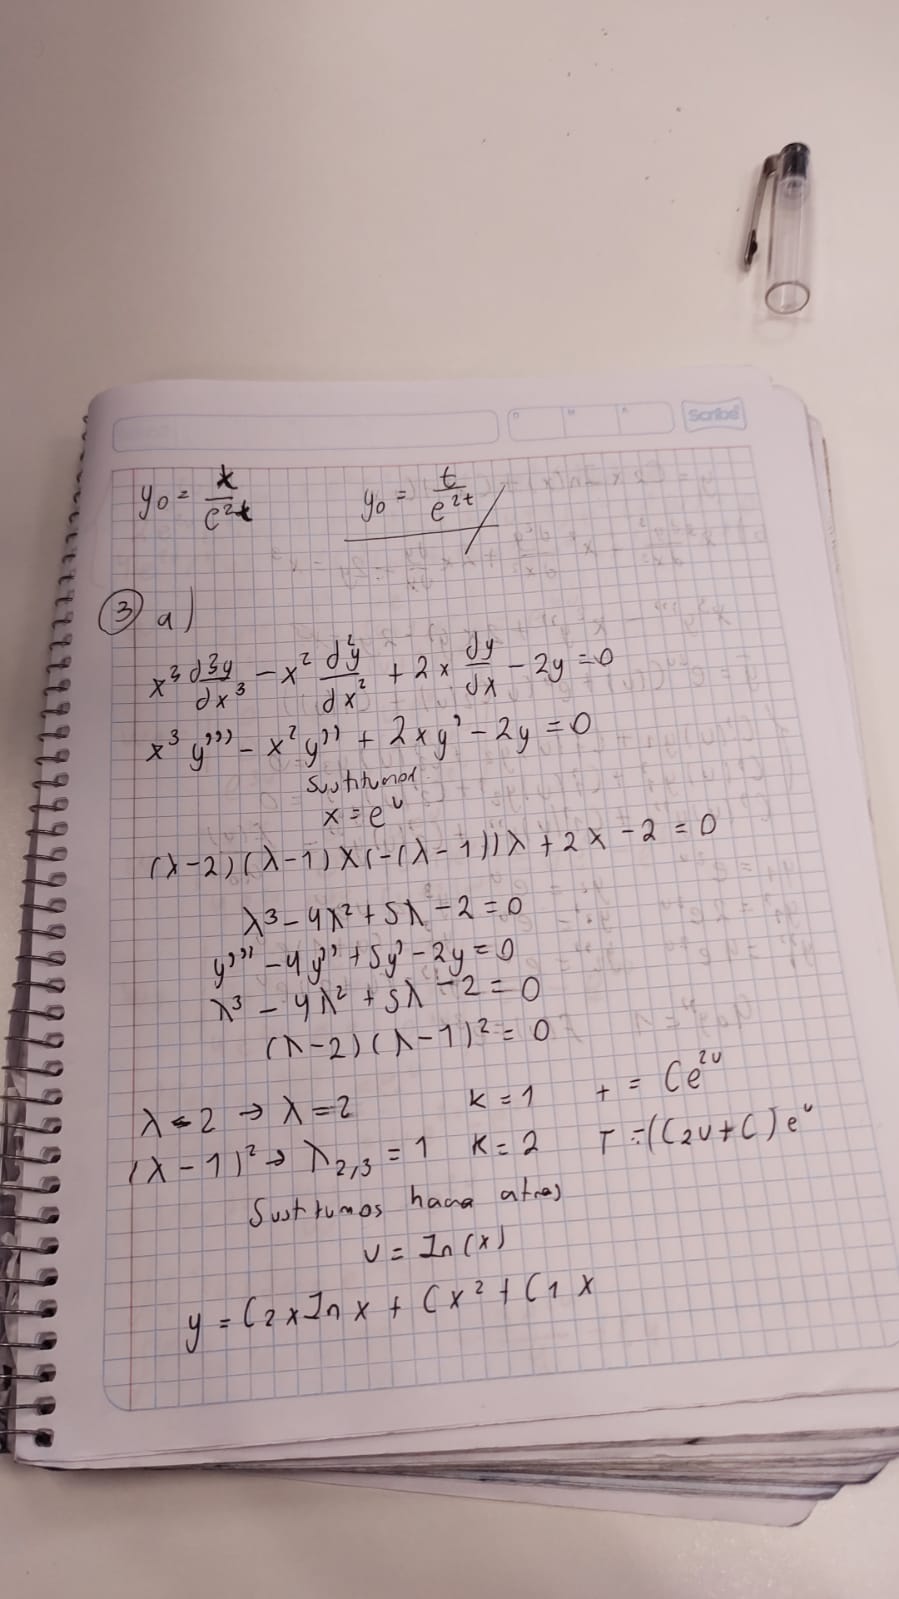 Scribe
y₀ = t/e^2t    y₀ = t/e^2t
③ a)
x³ d³y/dx³ - x² d²y/dx² + 2x dy/dx - 2y = 0
x³ y''' - x² y'' + 2xy' - 2y = 0
x = e^u
(λ-2)(λ-1)λ(-(λ-1))λ + 2λ - 2 = 0
λ³ - 4λ² + 5λ - 2 = 0
y''' - 4y'' + 5y' - 2y = 0
λ³ - 4λ² + 5λ - 2 = 0
(λ-2)(λ-1)² = 0
λ-2 → λ=2    K=1    + = Ce^2u
(λ-1)² → λ₂,₃ = 1    K=2    T = (C2u+C)e^u
u = In(x)
y = C2xInx + Cx² + C1x